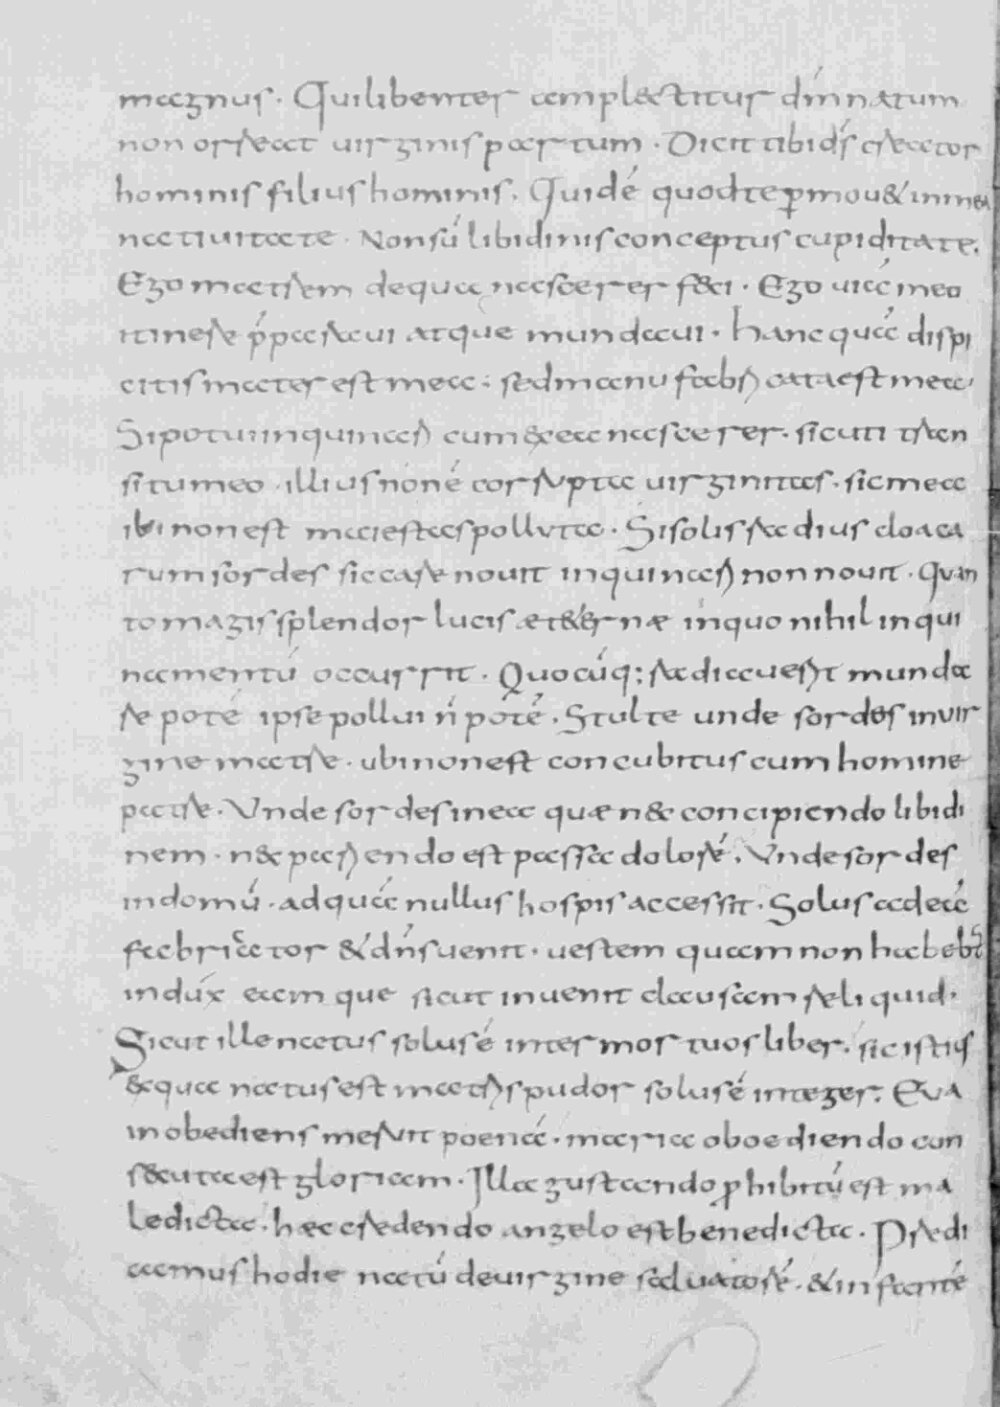 magnus. Qui libenter amplectitur dm̄ natum
non orreat uirginis partum. Dicit tibi ds̄ creator
hominis filius hominis. Quid ē quod te ꝑmou& in mea
natiuitate. Non sū libidinis conceptus cupiditate.
Ego matrem de qua nascerer feci. Ego uiā meo
itinere p̄paraui atque mundaui. hanc quā dispi
citis mater est mea. sed manu fabricata est mea.
Si potui inquinari cum ex ea nascerer. sicuti tran
situ meo illius non ē corrupta uirginitas. sic mea
ibi non est maiestas polluta. Si solis radius cloaca
rum sordes siccare nouit inquinari non nouit. Quan
to magis splendor lucis æternæ in quo nihil inqui
namentū occurrit. Quocūq; radiauerit munda
re potē ipse pollui n̄ potē. Stulte unde sordes in uir
gine matre. ubi non est concubitus cum homine
patre. Vnde sordes in ea quæ n& concipiendo libidi
nem. n& pariendo est passa dolorē. Vnde sordes
in domū. ad quā nullus hospis accessit. Solus ad eā
fabricator & dn̄s uenit. uestem quam non habeb̄t
indux eam que sicut inuenit clausam reliquid.
Sicut ille natus solus ē inter mortuos liber. sic istius
& qua natus est matris pudor solus ē integer. Eua
inobediens meruit poenā. maria oboediendo con
s&cuta est gloriam. Illa gustando ꝓhibitū est ma
ledicta. hæc credendo angelo est benedicta. Prædi
camus hodie natū de uirgine saluatorē. & infantē